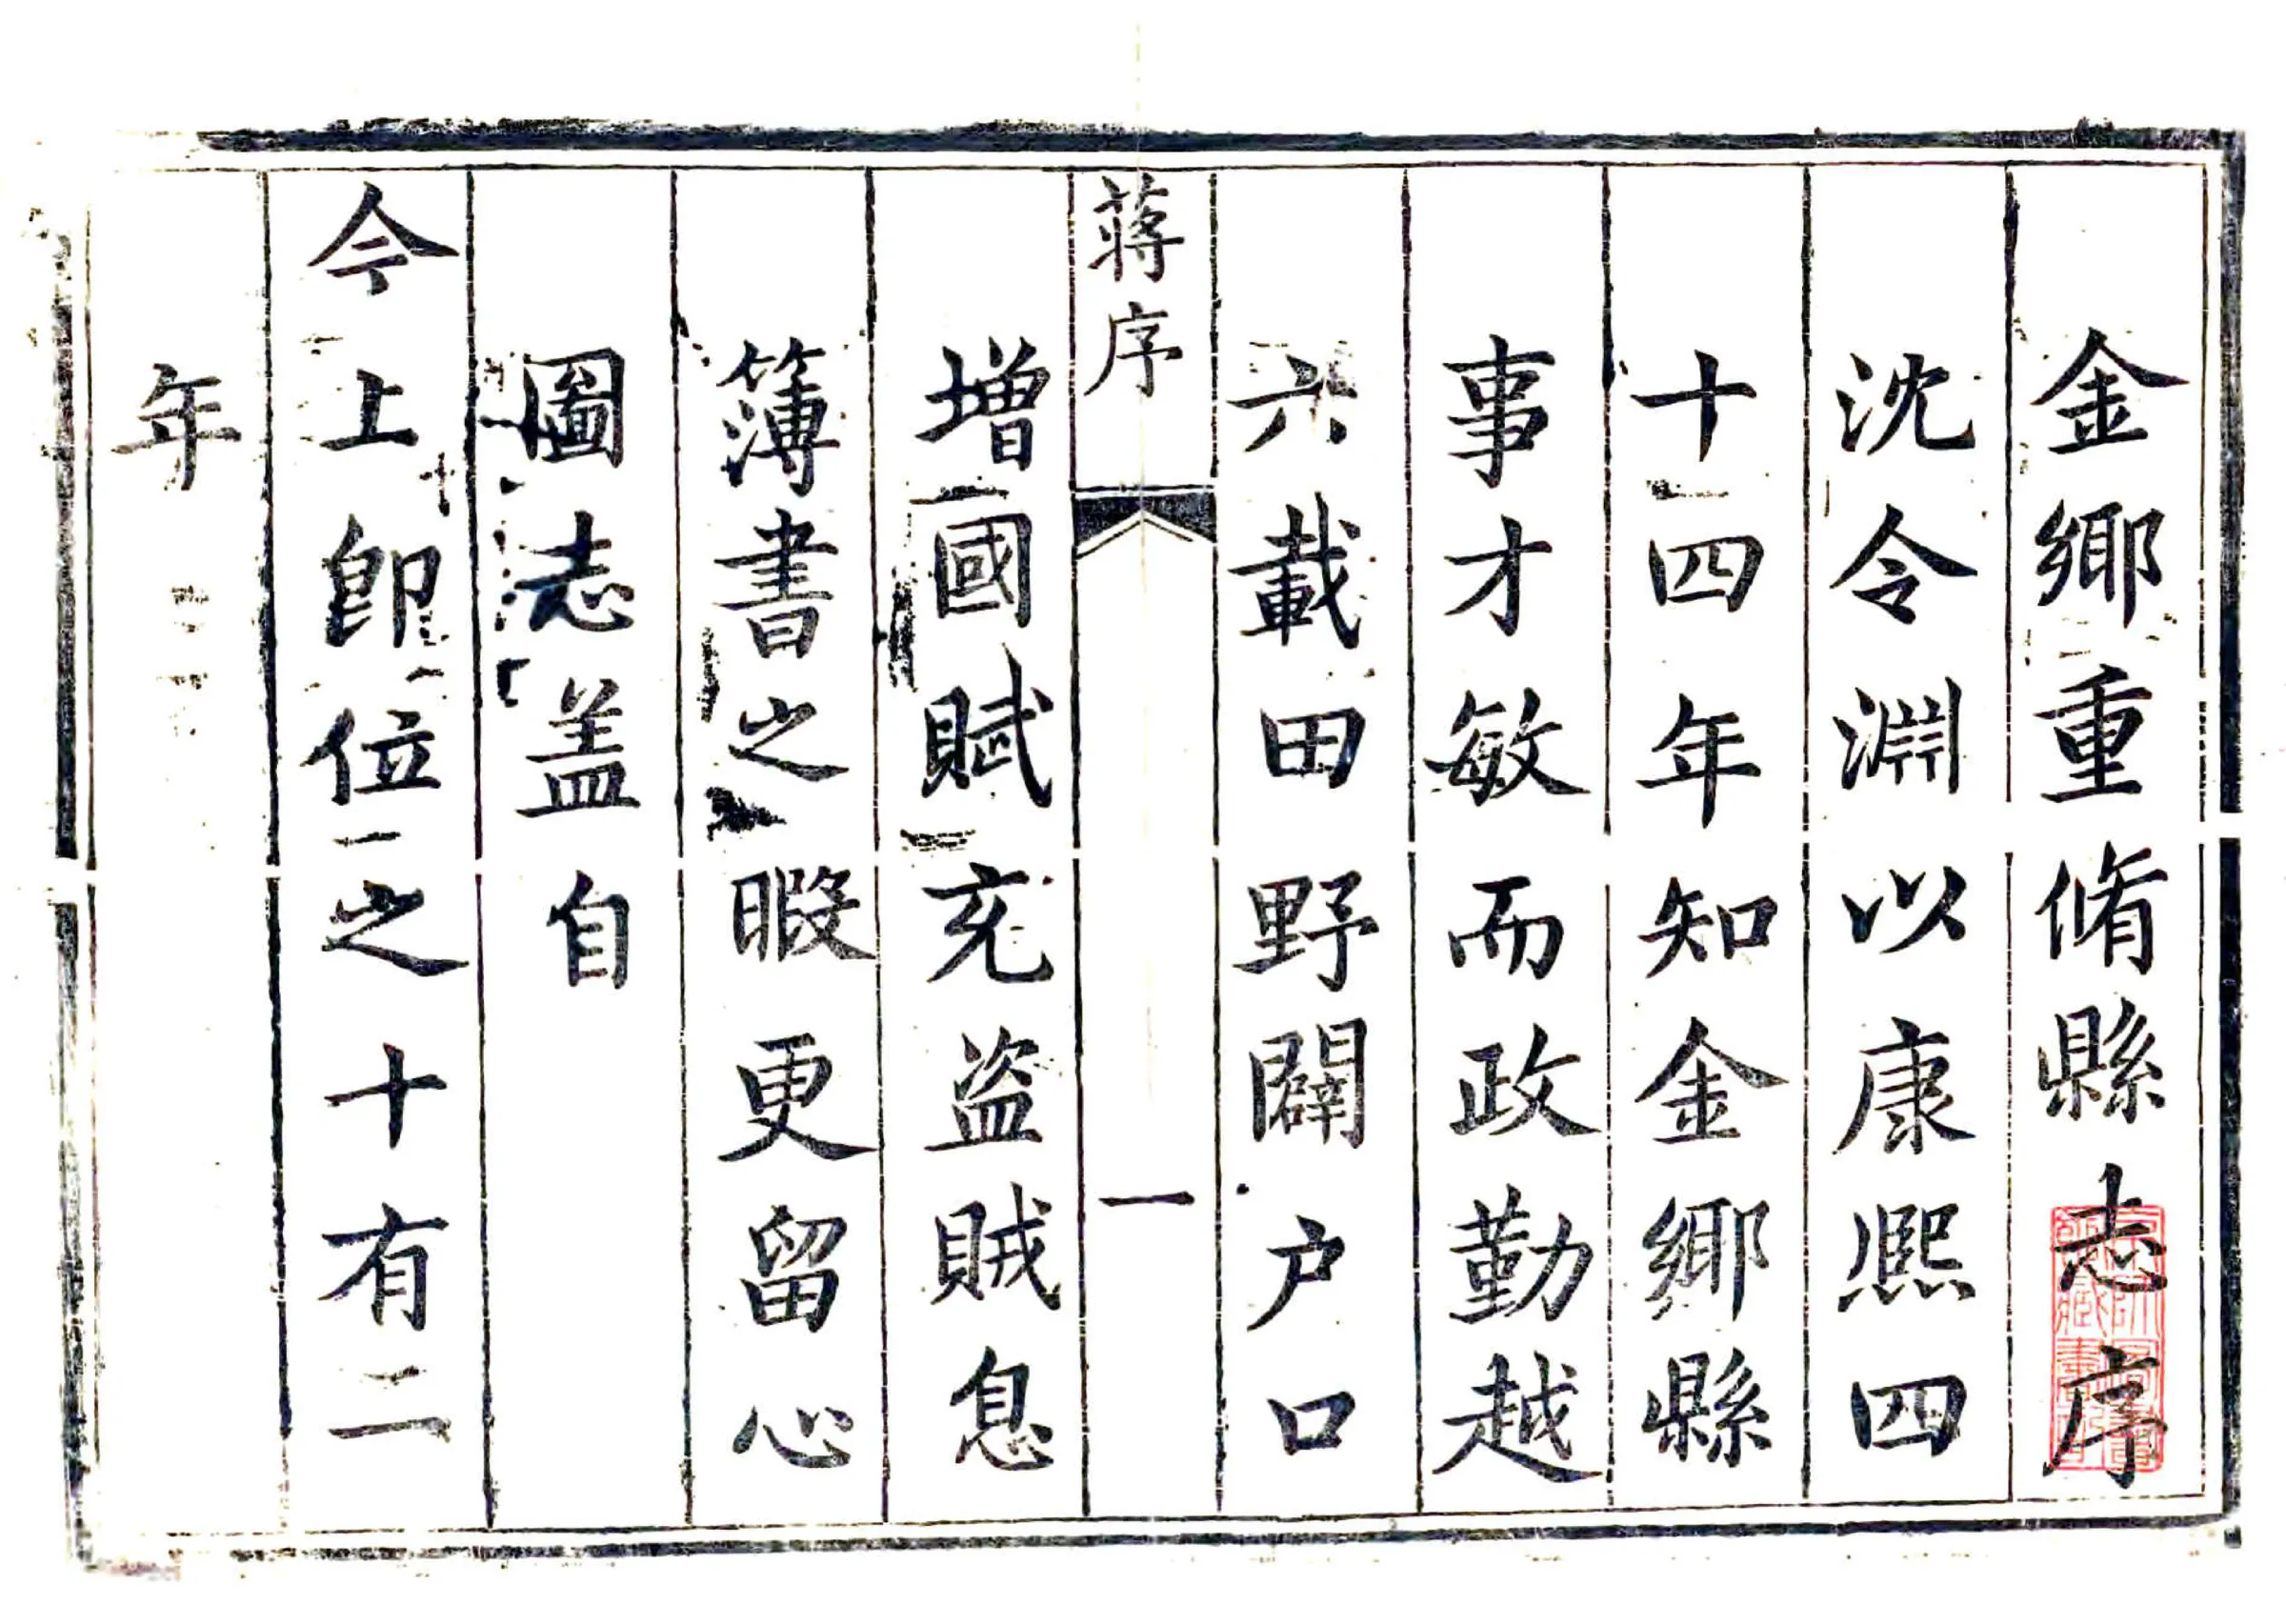 金鄉重脩縣志序
沈令淵以康熙四
十四年知金鄉縣
事才敏而政勤越
六載田野闢户口
蔣序
一
增國賦充盗賊息
簿書之暇更留心
圖志盖自
今上即位之十有二
年